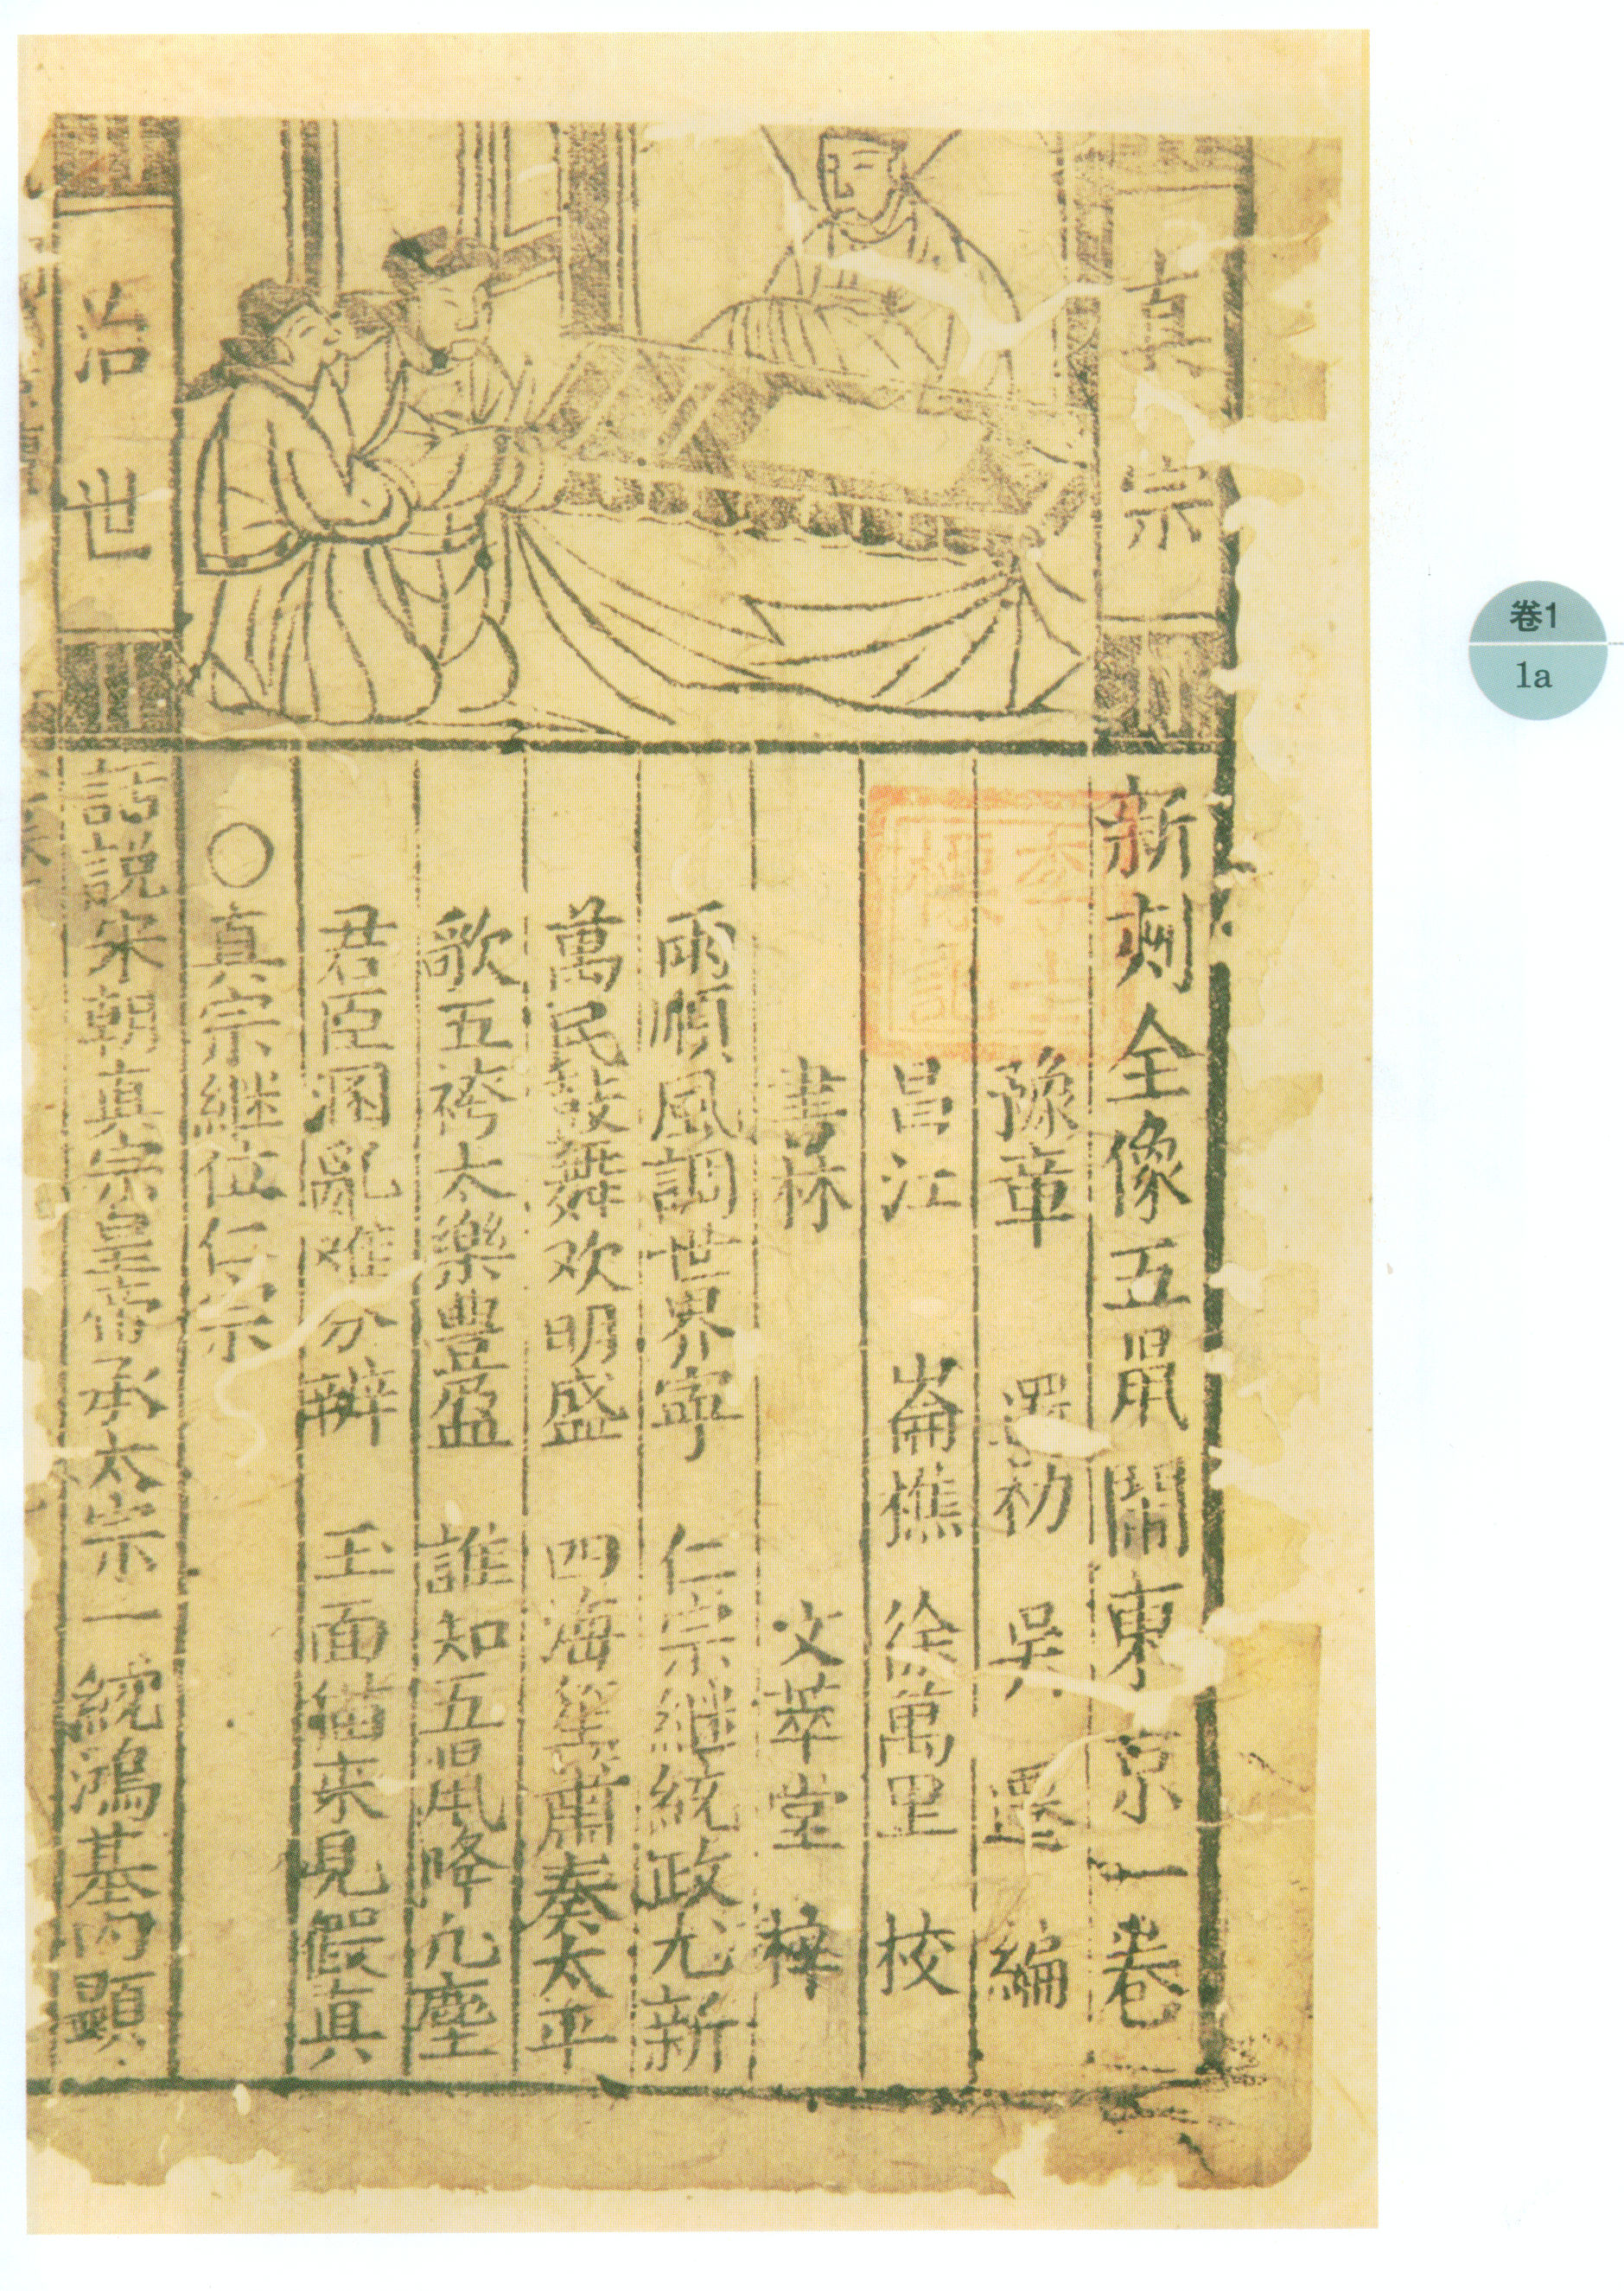 真宗
治世
新刻全像五鼠鬧東京一卷
豫章 還初 吳 遷 編
昌江 崙樵 徐萬里 校
書林 文萃堂 梓
雨順風調世界寧 仁宗継統政尤新
萬民鼓舞欢明盛 四海笙蕭奏太平
歌五袴太樂豊盈 誰知五鼠降凢塵
君臣溷亂难分辧 玉面猫来見假真
○真宗継位仁宗
話説宋朝真宗皇帝承太宗一統鴻基丙顕
卷1
1a